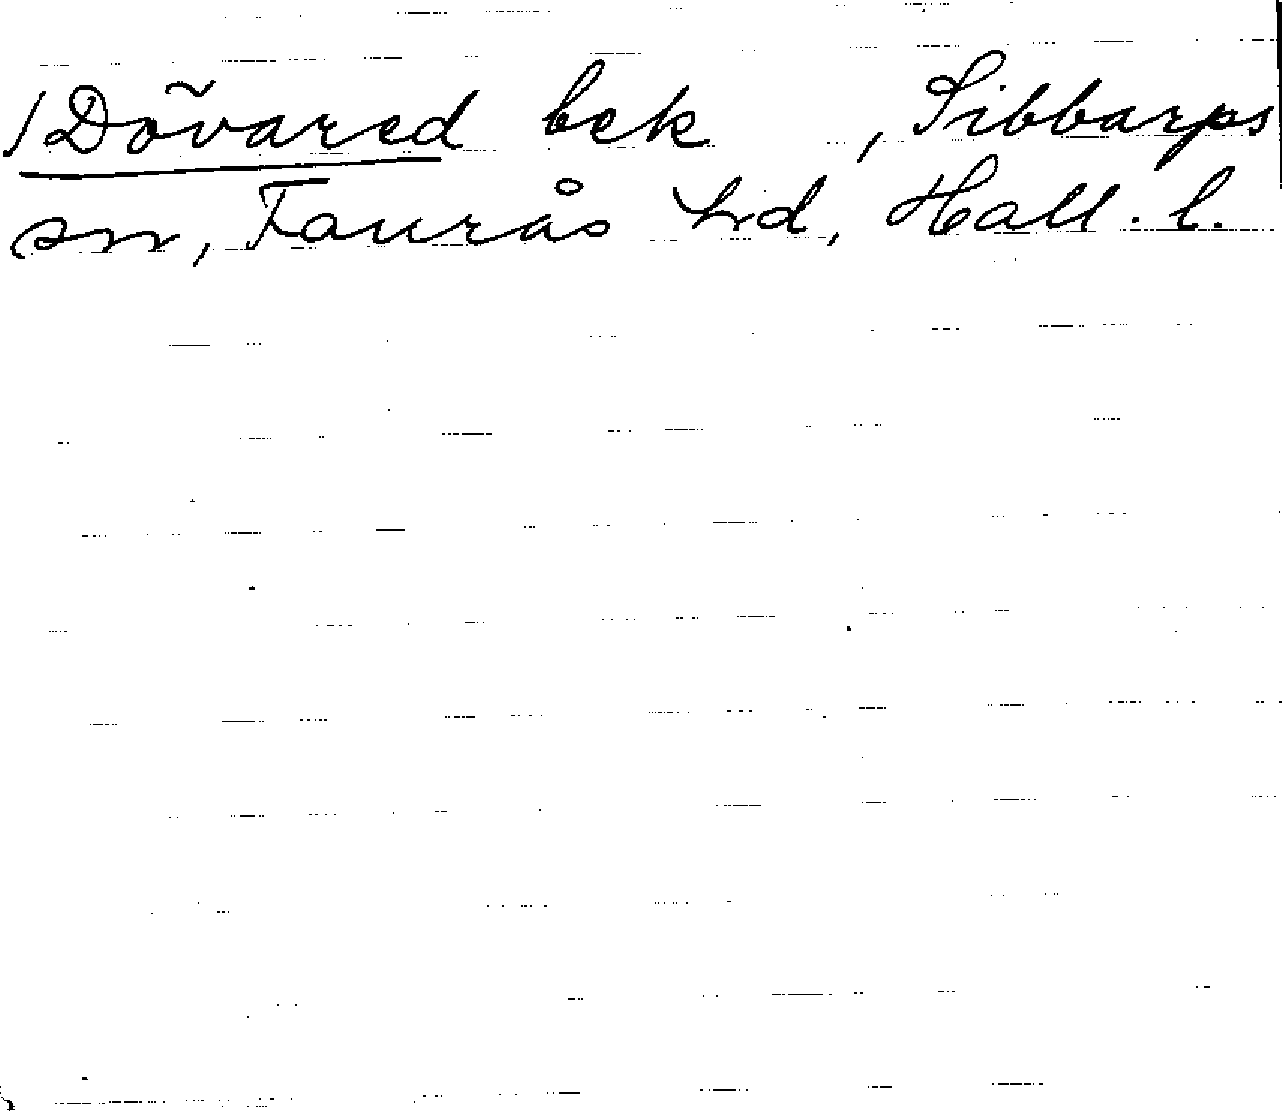 /Dövared bek , Sibbarps
sn, Faurås hd, Hall. l.